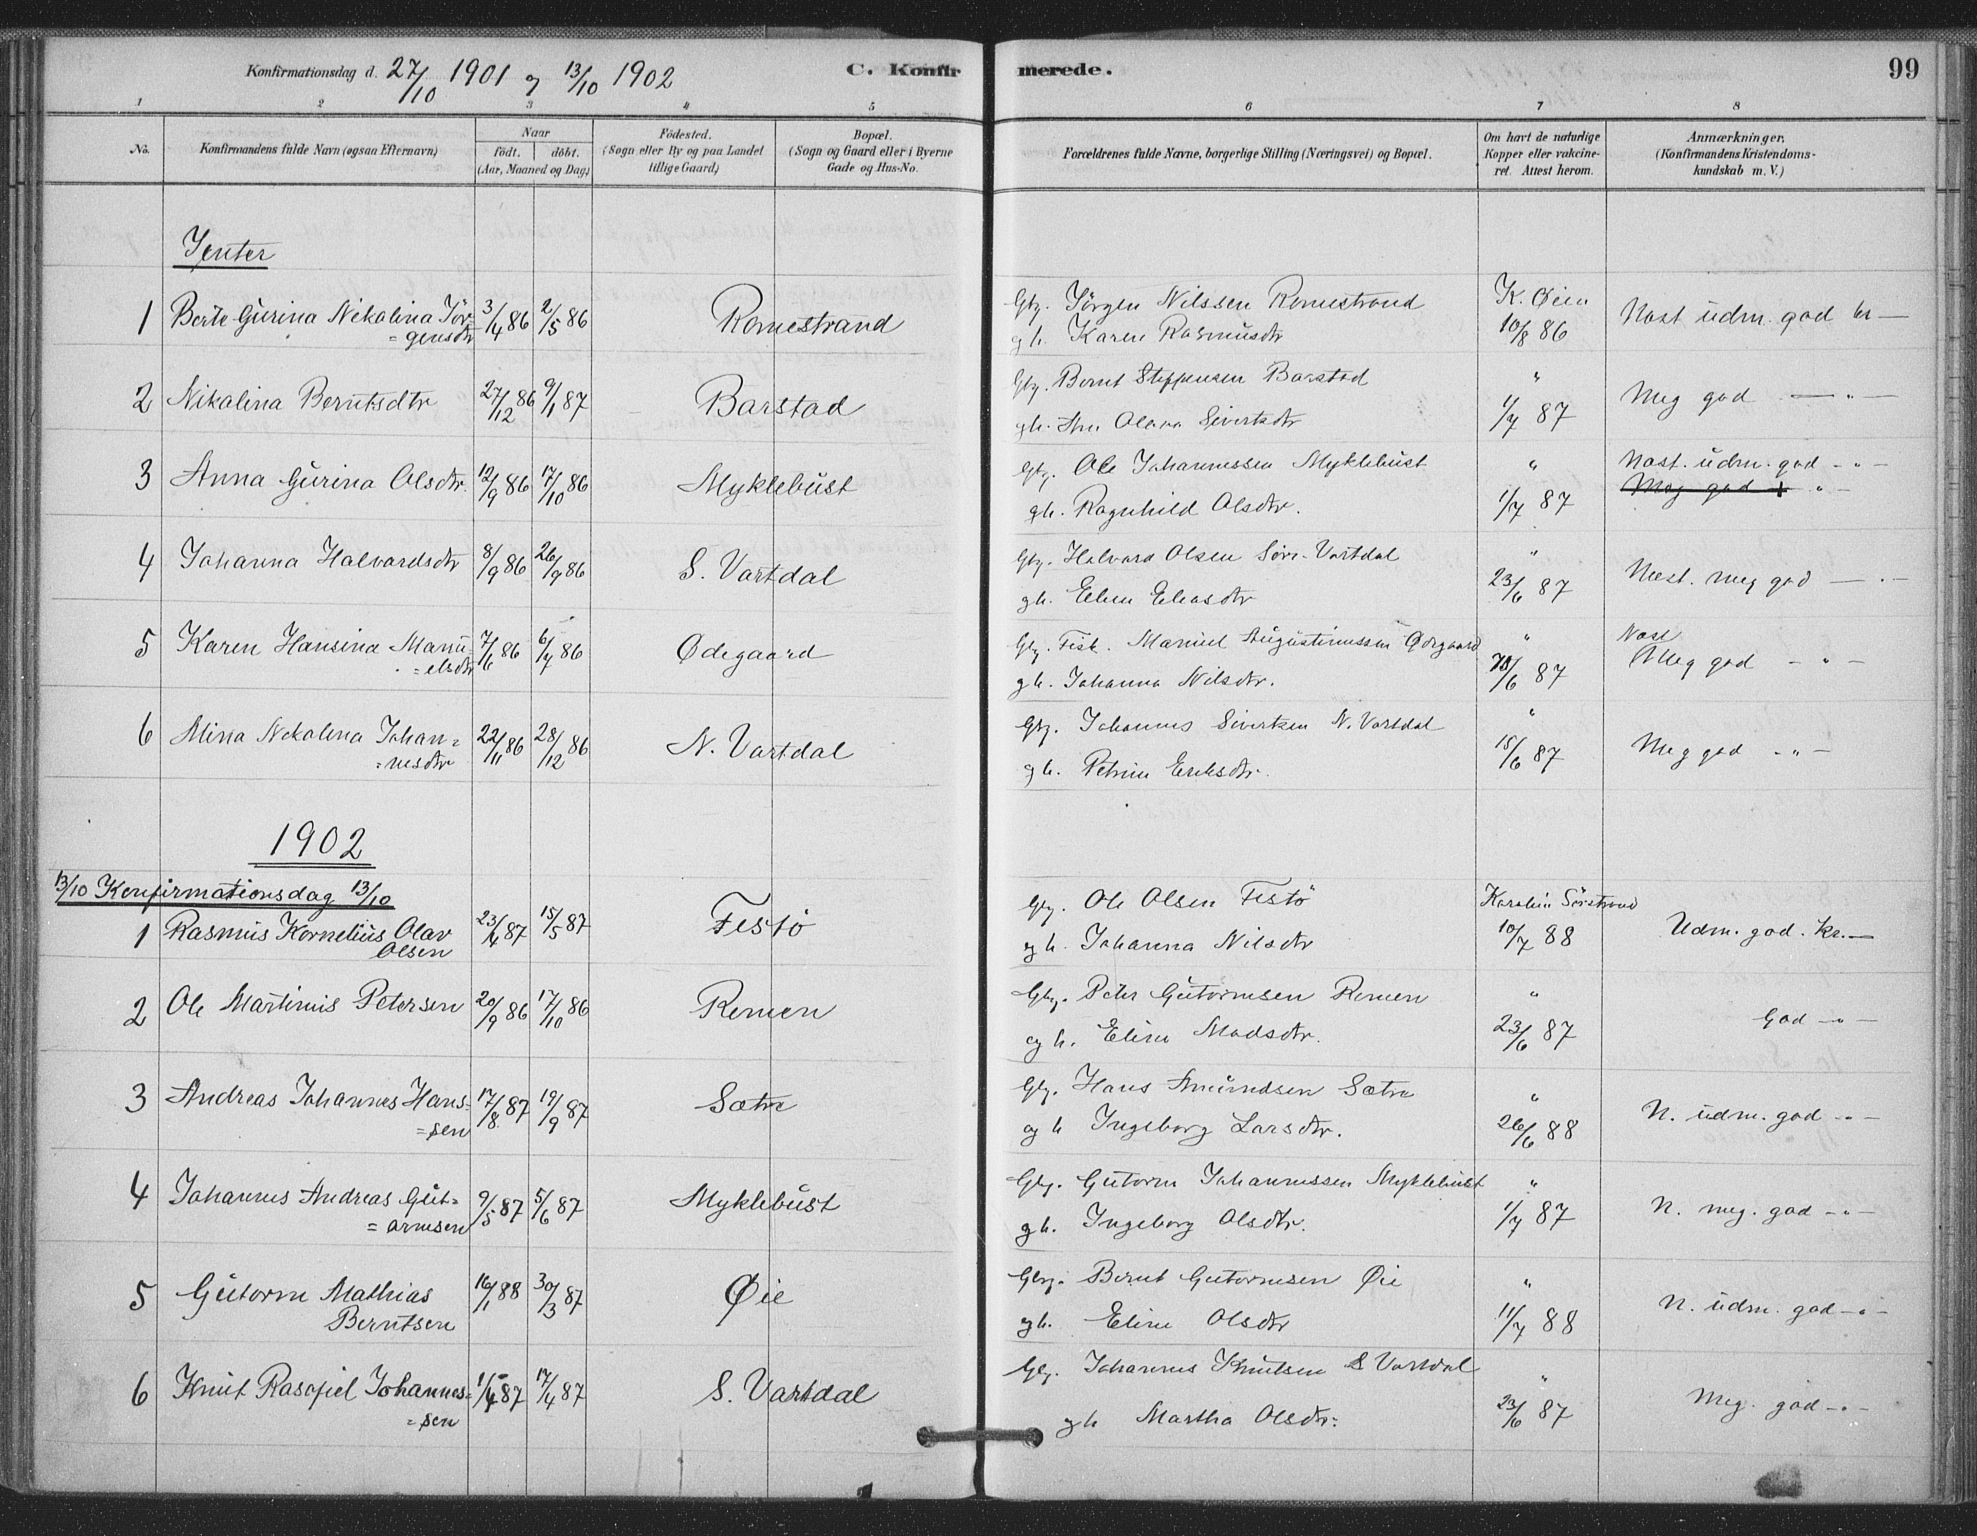 Konfirmationsdag d. 27/10 1901 og 13/10 1902
C. Konfirmerede.
99
1 2 3 4 5 6 7 8
No.
Konfirmandens fulde Navn (ogsaa Efternavn)
Naar
født. døbt.
(Aar, Maaned og Dag)
Fødested.
(Sogn eller By og paa Landet tillige Gaard)
Bopæl.
(Sogn og Gaard eller i Byerne Gade og Hus-No.
Forældrenes fulde Navne, borgerlige Stilling (Næringsvei) og Bopæl.
Om havt de naturlige Kopper eller vakcineret. Attest herom.
Anmærkninger,
(Konfirmandens Kristendomskundskab m. V.)
Jenter
1 Berte Gurina Nikolina Jör= 3/4 86 2/5 86 Romestrand Gbr. Jörgen Nilssen Romestrand K. Øien Næst udm. god kr —
=gensdtr gh. Karen Rasmusdtr 10/8 86
2 Nikolina Berntsdtr 27/12 86 9/1 87 Barstad Gbr. Bernt Steffensen Barstad " Meg god — " —
gh. Ane Olava Sivertsdtr 1/7 87
3 Anna Gurina Olsdtr. 12/9 86 17/10 86 Myklebust Gbr. Ole Johannessen Myklebust " Næst. udm. god - " -
gh. Ragnhild Olsdtr. 1/7 87 Meg god " -
4 Johanna Halvardsdtr 8/9 86 26/9 86 S. Vartdal Gbr. Halvard Olsen Søre-Vartdal " Næst. meg god — " —
gh. Eline Eliasdtr 23/6 87
5 Karen Hansina Manu= 7/6 86 6/7 86 Ødegaard Gbr. Fisk. Manuel Augustinussen Ødegaard " Næst
=elsdtr gh. Johanna Nilsdtr. /6 87 Meg god - " -
6 Mina Nikolina Johan= 22/11 86 28/12 86 N. Vartdal Gbr. Johannes Sivertsen N. Vartdal " Meg god - " -
=nesdtr gh. Petrine Eriksdtr. 15/6 87
1902
13/10 Konfirmationsdag 13/10
1 Rasmus Kornelius Olav 23/4 87 15/5 87 Festö Gbr. Ole Olsen Festö Karolin Sørstrand Udm. god. kr. —
Olsen og h. Johanna Nilsdtr 10/7 88
2 Ole Martinus Petersen 20/9 86 17/10 86 Remen Gbr. Peter Gutormsen Remen " God - " -
og h. Eline Madsdtr. 23/6 87
3 Andreas Johannes Hans= 17/8 87 19/9 87 Sætre Gbr. Hans Amundsen Sætre " N. udm. god - " -
=sen og h Ingeborg Larsdtr. 26/6 88
4 Johannes Andreas Gut= 9/5 87 5/6 87 Myklebust Gbr. Gutorm Johannessen Myklebust " N. meg. god - " -
=ormsen gh. Ingeborg Olsdtr. 1/7 87
5 Gutorm Mathias 16/1 88 30/3 87 Øie Gbr. Bernt Gutormsen Øie " N. udm. god - " -
Berntsen gh. Eline Olsdtr 11/7 88
6 Knut Rasofiel Johannes= 1/4 87 17/4 87 S. Vartdal Gbr. Johannes Knutsen S Vartdal " Meg. god - " -
=sen gh Martha Olsdtr: 23/6 87